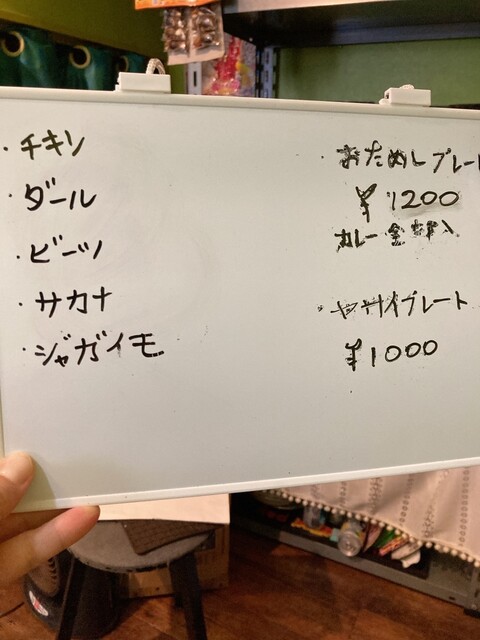 ・チキン
・ダール
・ビーツ
・サカナ
・ジャガイモ
・おためしプレート
¥1200
カレー全部入
・ヤサイプレート
¥1000